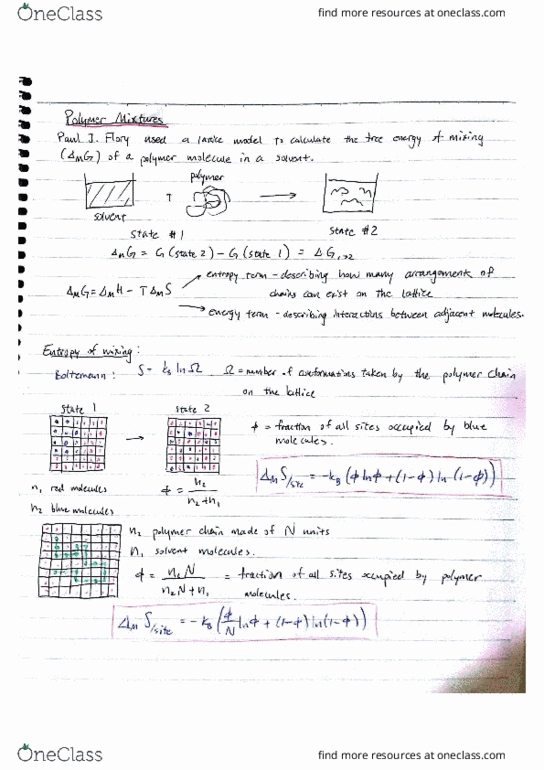 OneClass
find more resources at oneclass.com
Polymer Mixtures
Paul J. Flory used a lattice model to calculate the free energy of mixing
(ΔMG) of a polymer molecule in a solvent.
polymer
solvent
State #1
State #2
ΔMG = G(state 2) - G(state 1) = ΔG1→2
entropy term - describing how many arrangements of
chains can exist on the lattice
ΔMG = ΔMH - TΔMS
energy term - describing interactions between adjacent molecules.
Entropy of mixing:
Boltzmann: S = kB ln Ω Ω = number of conformations taken by the polymer chain
on the lattice
State 1
State 2
ϕ = fraction of all sites occupied by blue
molecules.
ΔM S/site = -kB (ϕ ln ϕ + (1-ϕ) ln (1-ϕ))
n1 red molecules
ϕ = n2 / n2+n1
n2 blue molecules
n2 polymer chain made of N units
n1 solvent molecules.
ϕ = n2N / n2N+n1 = fraction of all sites occupied by polymer
molecules.
ΔM S/site = -kB (ϕ/N ln ϕ + (1-ϕ) ln (1-ϕ))
OneClass
find more resources at oneclass.com